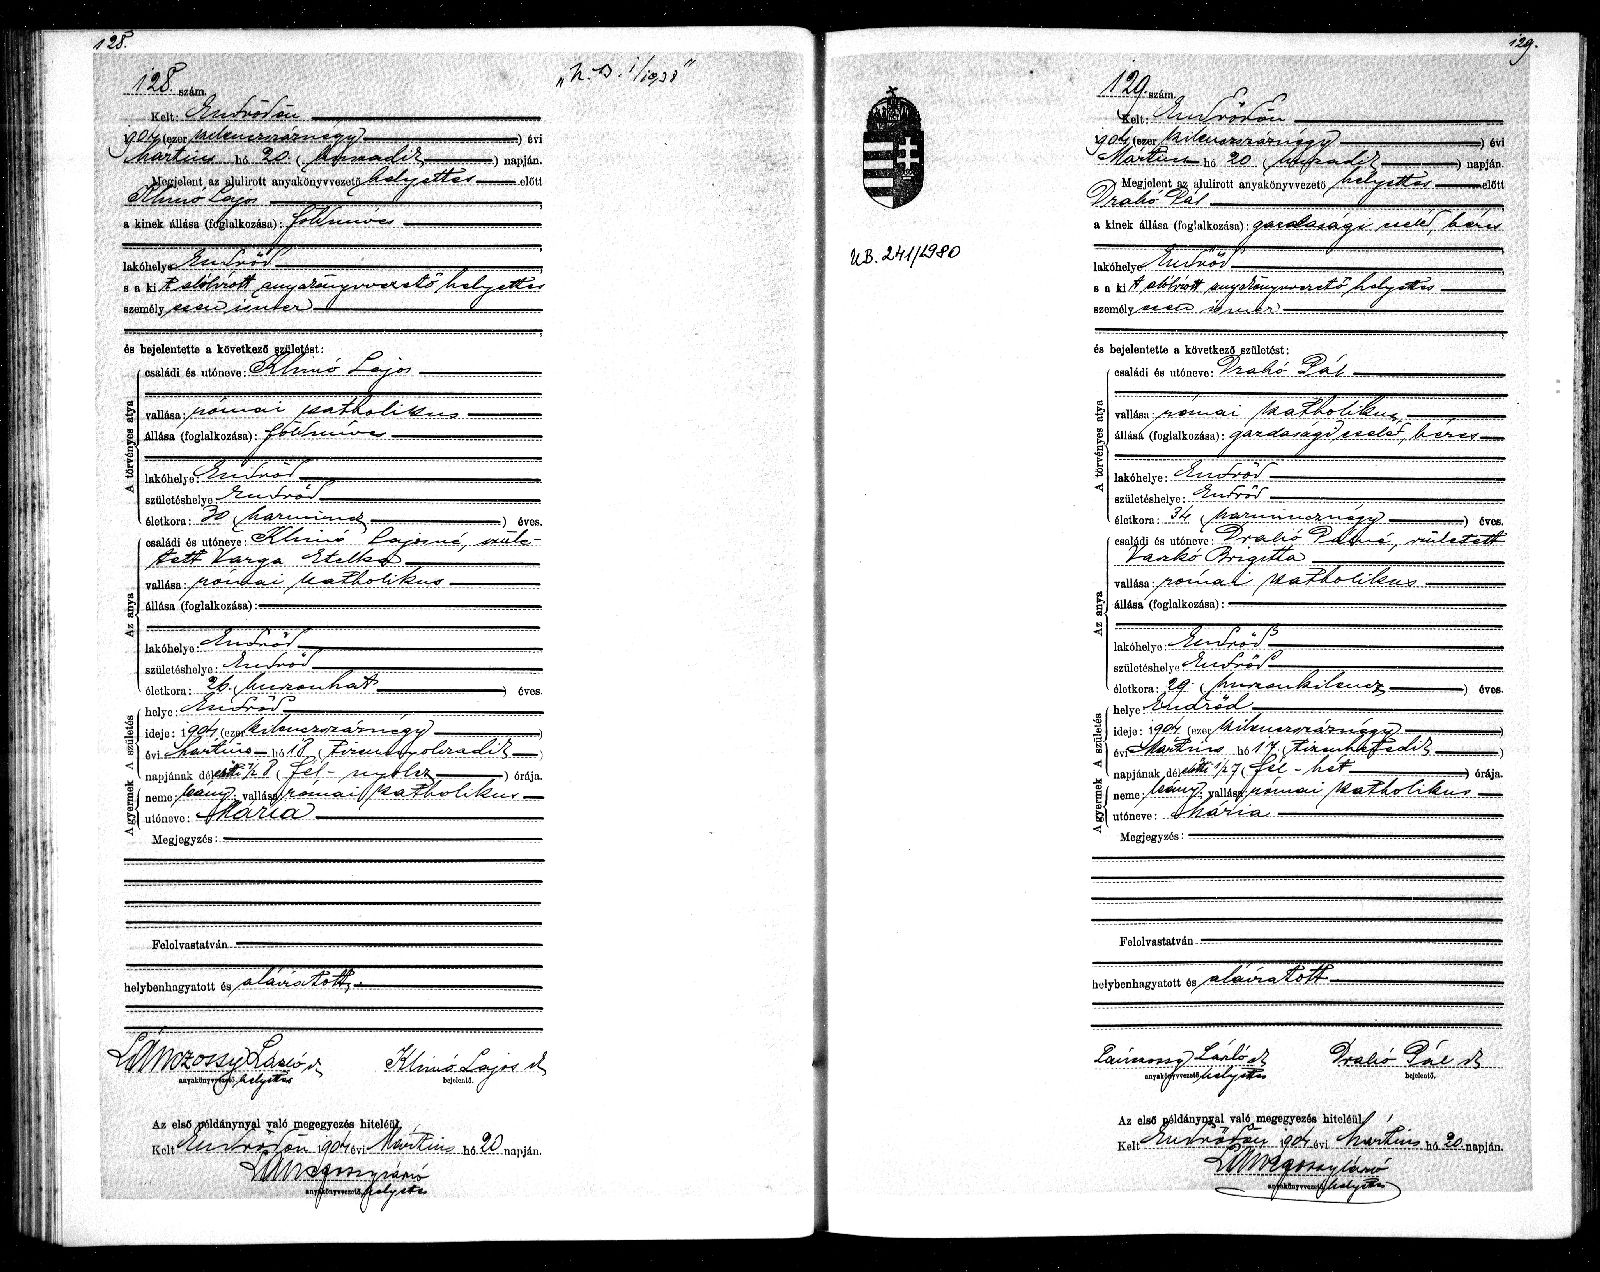 128.
128. szám.
Kelt: Endrődön
1904 (ezer kilenczszáznégy) évi
Martius hó 20. (huszadik) napján.
Megjelent az alulirott anyakönyvvezető helyettes előtt
Klimó Lajos
a kinek állása (foglalkozása): földmíves
lakóhelye Endrőd
s a kit alólirott anyakönyvvezető helyettes
személyesen ismer
és bejelentette a következő születést:
A törvényes atya
családi és utóneve: Klimó Lajos
vallása: római katholikus
állása (foglalkozása): földmíves
lakóhelye: Endrőd
születéshelye: Endrőd
életkora: 30 (harmincz) éves.
Az anya
családi és utóneve: Klimó Lajosné, szüle-
tett Varga Etelka
vallása: római katholikus
állása (foglalkozása):
lakóhelye: Endrőd
születéshelye: Endrőd
életkora: 26. (huszonhat) éves.
A születés
helye: Endrőd
ideje: 1904 (ezer kilenczszáznégy)
évi Martius hó 18 (tizennyolczadik)
napjának délelőtti 1/2 8 (fél-nyolcz) órája.
A gyermek
neme: leány; vallása: római katholikus
utóneve: Mária
Megjegyzés:
Felolvastatván
helybenhagyatott és aláiratott.
Lánczossy László sk
anyakönyvvezető helyettes
Klimó Lajos sk
bejelentő.
Az első példánynyal való megegyezés hiteléül.
Kelt Endrődön 1904 évi Martius hó 20 napján.
anyakönyvvezető helyettes
129.
U.B. 241/1980
129. szám.
Kelt: Endrődön
1904 (ezer kilenczszáznégy) évi
Martius hó 20 (huszadik) napján.
Megjelent az alulirott anyakönyvvezető helyettes előtt
Drahó Pál
a kinek állása (foglalkozása): gazdasági cseléd, béres
lakóhelye Endrőd
s a kit alólirott anyakönyvvezető helyettes
személyesen ismer
és bejelentette a következő születést:
A törvényes atya
családi és utóneve: Drahó Pál
vallása: római katholikus
állása (foglalkozása): gazdasági cseléd, béres
lakóhelye: Endrőd
születéshelye: Endrőd
életkora: 34 (harmincznégy) éves.
Az anya
családi és utóneve: Drahó Pálné, született
Varkó Brigitta
vallása: római katholikus
állása (foglalkozása):
lakóhelye: Endrőd
születéshelye: Endrőd
életkora: 29. (huszonkilencz) éves.
A születés
helye: Endrőd
ideje: 1904 (ezer kilenczszáznégy)
évi Martius hó 17 (tizenhetedik)
napjának délelőtti 1/2 7 (fél-hét) órája.
A gyermek
neme: leány; vallása: római katholikus
utóneve: Mária
Megjegyzés:
Felolvastatván
helybenhagyatott és aláiratott
László sk
anyakönyvvezető helyettes
Drahó Pál sk
bejelentő.
Az első példánynyal való megegyezés hiteléül.
Kelt Endrődön 1904 évi Martius hó 20 napján.
anyakönyvvezető helyettes